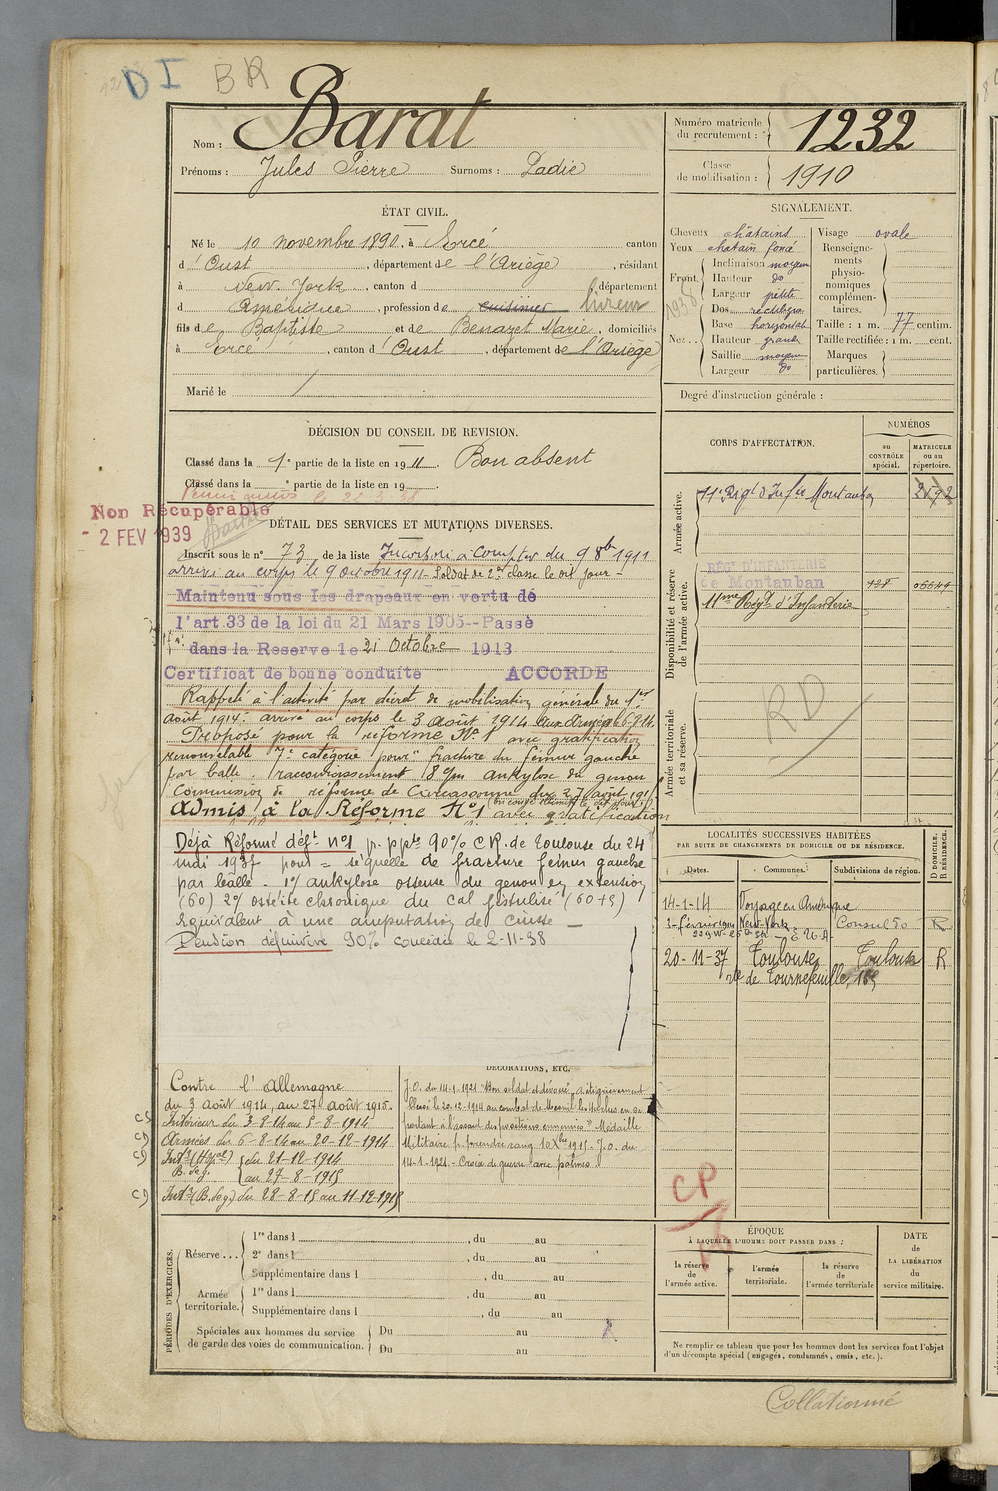 DI BR
Nom : Barat
Prénoms : Jules Pierre Surnoms : Ladie
Numéro matricule du recrutement : 1232
Classe de mobilisation : 1910
ÉTAT CIVIL.
Né le 10 novembre 1890, à Ercé canton
d'Oust, département de l'Ariège, résidant
à New York, canton d département
d Amérique, profession de cuisinier
fils de Baptiste et de Benazet Marie, domiciliés
à Ercé, canton d'Oust, département de l'Ariège
Marié le
SIGNALEMENT.
Cheveux chatains
Yeux chatain foncé
Front Inclinaison moyen
Hauteur do
Largeur petite
Nez Dos rectiligne
Base horizontal
Hauteur grande
Saillie moyen
Largeur do
1938
Visage ovale
Renseignements physionomiques complémentaires.
Taille : 1 m. 77 centim.
Taille rectifiée : 1 m. cent.
Marques particulières.
Degré d'instruction générale :
DÉCISION DU CONSEIL DE REVISION.
Classé dans la 1e partie de la liste en 1911. Bon absent
Classé dans la e partie de la liste en 19
Non Récupérable
- 2 FEV 1939
DÉTAIL DES SERVICES ET MUTATIONS DIVERSES.
Inscrit sous le n° 73 de la liste Incorporé à compter du 9 8bre 1911
arrivé au corps le 9 octobre 1911 - Soldat de 2e classe le dit jour -
Maintenu sous les drapeaux en vertu de
l'art.33 de la loi du 21 Mars 1905--Passé
dans la Reserve le 21 Octobre 1913
Certificat de bonne conduite ACCORDE
Rappelé à l'activité par décret de mobilisation générale du 1er
août 1914. arrivé au corps le 3 Août 1914. aux armées le 6.9.14
Proposé pour la réforme N°1 avec gratification
renouvelable 7e catégorie pour "fracture du fémur gauche
par balle. raccourcissement 8 c/m ankylose du genou
Commission de réforme de Carcassonne du 27 août 191
Admis à la Réforme N°1 avec gratification
Déjà Réformé déft n°1 p. ppte 90% C.R. de Toulouse du 24
mai 1937 pour = séquelle de fracture fémur gauche
par balle - 1°/ ankylose osseuse du genou en extension
(60) 2°/ ostéite chronique du cal fistulisé (60+5)
Equivalent à une amputation de cuisse -
Pension définitive 90% concédée le 2-11-38
CORPS D'AFFECTATION.
NUMÉROS
au CONTRÔLE spécial.
MATRICULE ou au répertoire.
Armée active.
11e Régt d'Infie Montauban 2592
Disponibilité et réserve de l'armée active.
REGt D'INFANTERIE
de Montauban
11me Régt d'Infanterie
Armée territoriale et sa réserve.
RD
LOCALITÉS SUCCESSIVES HABITÉES
PAR SUITE DE CHANGEMENTS DE DOMICILE OU DE RÉSIDENCE.
Dates. Communes. Subdivisions de région. D DOMICILE. R RÉSIDENCE.
14-1-14 Voyage en Amérique
New-York Consul do R
E.U.A.
20-11-37 Toulouse Toulouse R
rte de Tournefeuille, 169
Contre l'Allemagne
du 3 Août 1914, au 27 Août 1915.
Intérieur du 3-8-14 au 5-8-1914
Armées du 6-8-14 au 20-12-1914
Intr (Hopal) B. Seg. du 21-12-1914
au 27-8-1915
Intr (B. Seg.) du 28-8-15 au 11-12-1915
DÉCORATIONS, ETC.
J.O. du 14-1-1921 "Bon soldat et dévoué, a été grièvement
blessé le 20-12-1914 au combat de Mesnil les Hurlus en se
portant à l'assaut des positions ennemies" Médaille
Militaire p. prendre rang 10 Xbre 1915. J.O. du
14-1-1921. Croix de guerre avec palmes.
CP
PÉRIODES D'EXERCICES.
Réserve... 1re dans l , du au
2e dans l , du au
Supplémentaire dans l , du au
Armée territoriale. 1re dans l , du au
Supplémentaire dans l , du au
Spéciales aux hommes du service de garde des voies de communication. Du au
Du au
ÉPOQUE
À LAQUELLE L'HOMME DOIT PASSER DANS :
la réserve de l'armée active.
l'armée territoriale.
la réserve de l'armée territoriale
DATE de LA LIBÉRATION du service militaire.
Ne remplir ce tableau que pour les hommes dont les services font l'objet
d'un décompte spécial (engagés, condamnés, omis, etc.).
Collationné